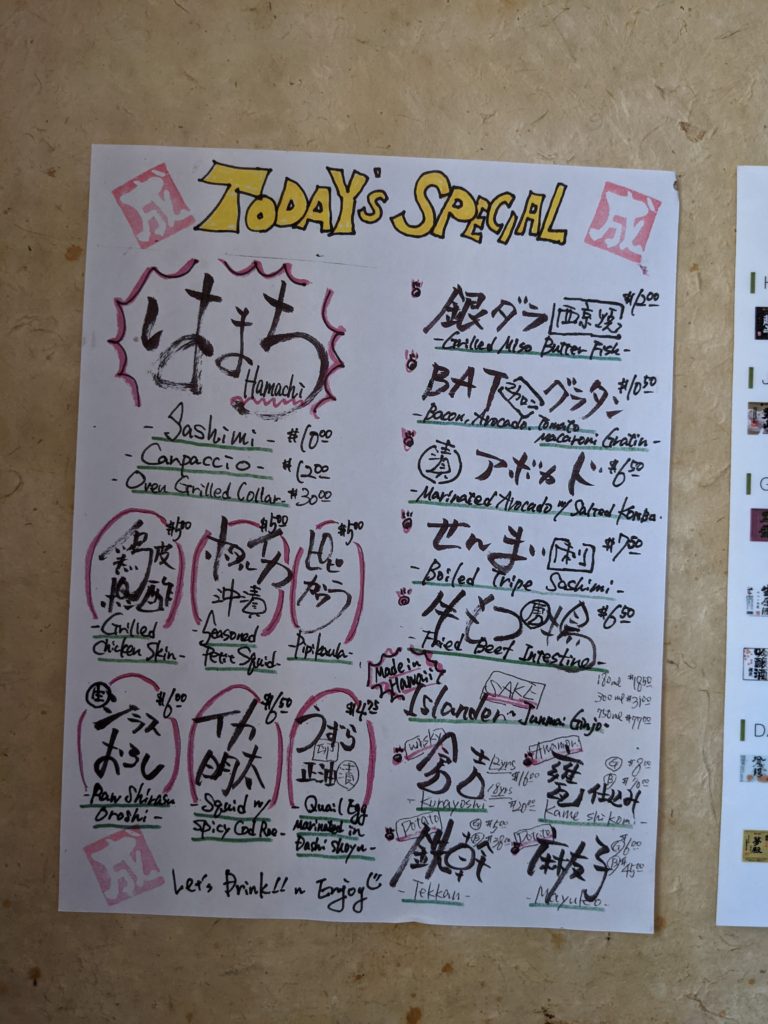 成
TODAY's SPECIAL
成
はまち
Hamachi
- Sashimi - $10.00
- Canpaccio - $12.00
- Oven Grilled Collar - $30.00
$5.00
鶏皮
ポン酢
- Grilled
Chicken Skin -
$5.00
ホタルイカ
沖漬
- Seasoned
Petit Squid -
$5.00
ピピ
カウラ
- Pipikaula -
生 $6.00
シラス
おろし
- Raw Shirasu
Oroshi -
$6.50
イカ
明太
- Squid w/
Spicy Cod Roe -
$4.75
うずら
正油 漬
- Quail Egg
Marinated in
Dashi Shoyu -
成
Let's Drink!! n Enjoy
銀ダラ 西京焼
- Grilled Miso Butter Fish -
BAT マカロニ グラタン $10.50
- Bacon, Avocado, Tomato
Macaroni Gratin -
漬 アボカド $6.50
- Marinated Avocado w/ Salted Konbu -
せんまい 刺 $7.50
- Boiled Tripe Sashimi -
牛もつ 唐揚 $6.50
- Fried Beef Intestine -
Made in
HAWAII
SAKE
Islander - Junmai Ginjo -
180ml $18.50
300ml $31.00
750ml $77.00
Wisky
倉吉
12yrs
$16.00
18yrs
- Kurayoshi -
Awamori
仕込み
- Kame shikomi -
Potato
- Tekkan -
Potato
- Mayuko -